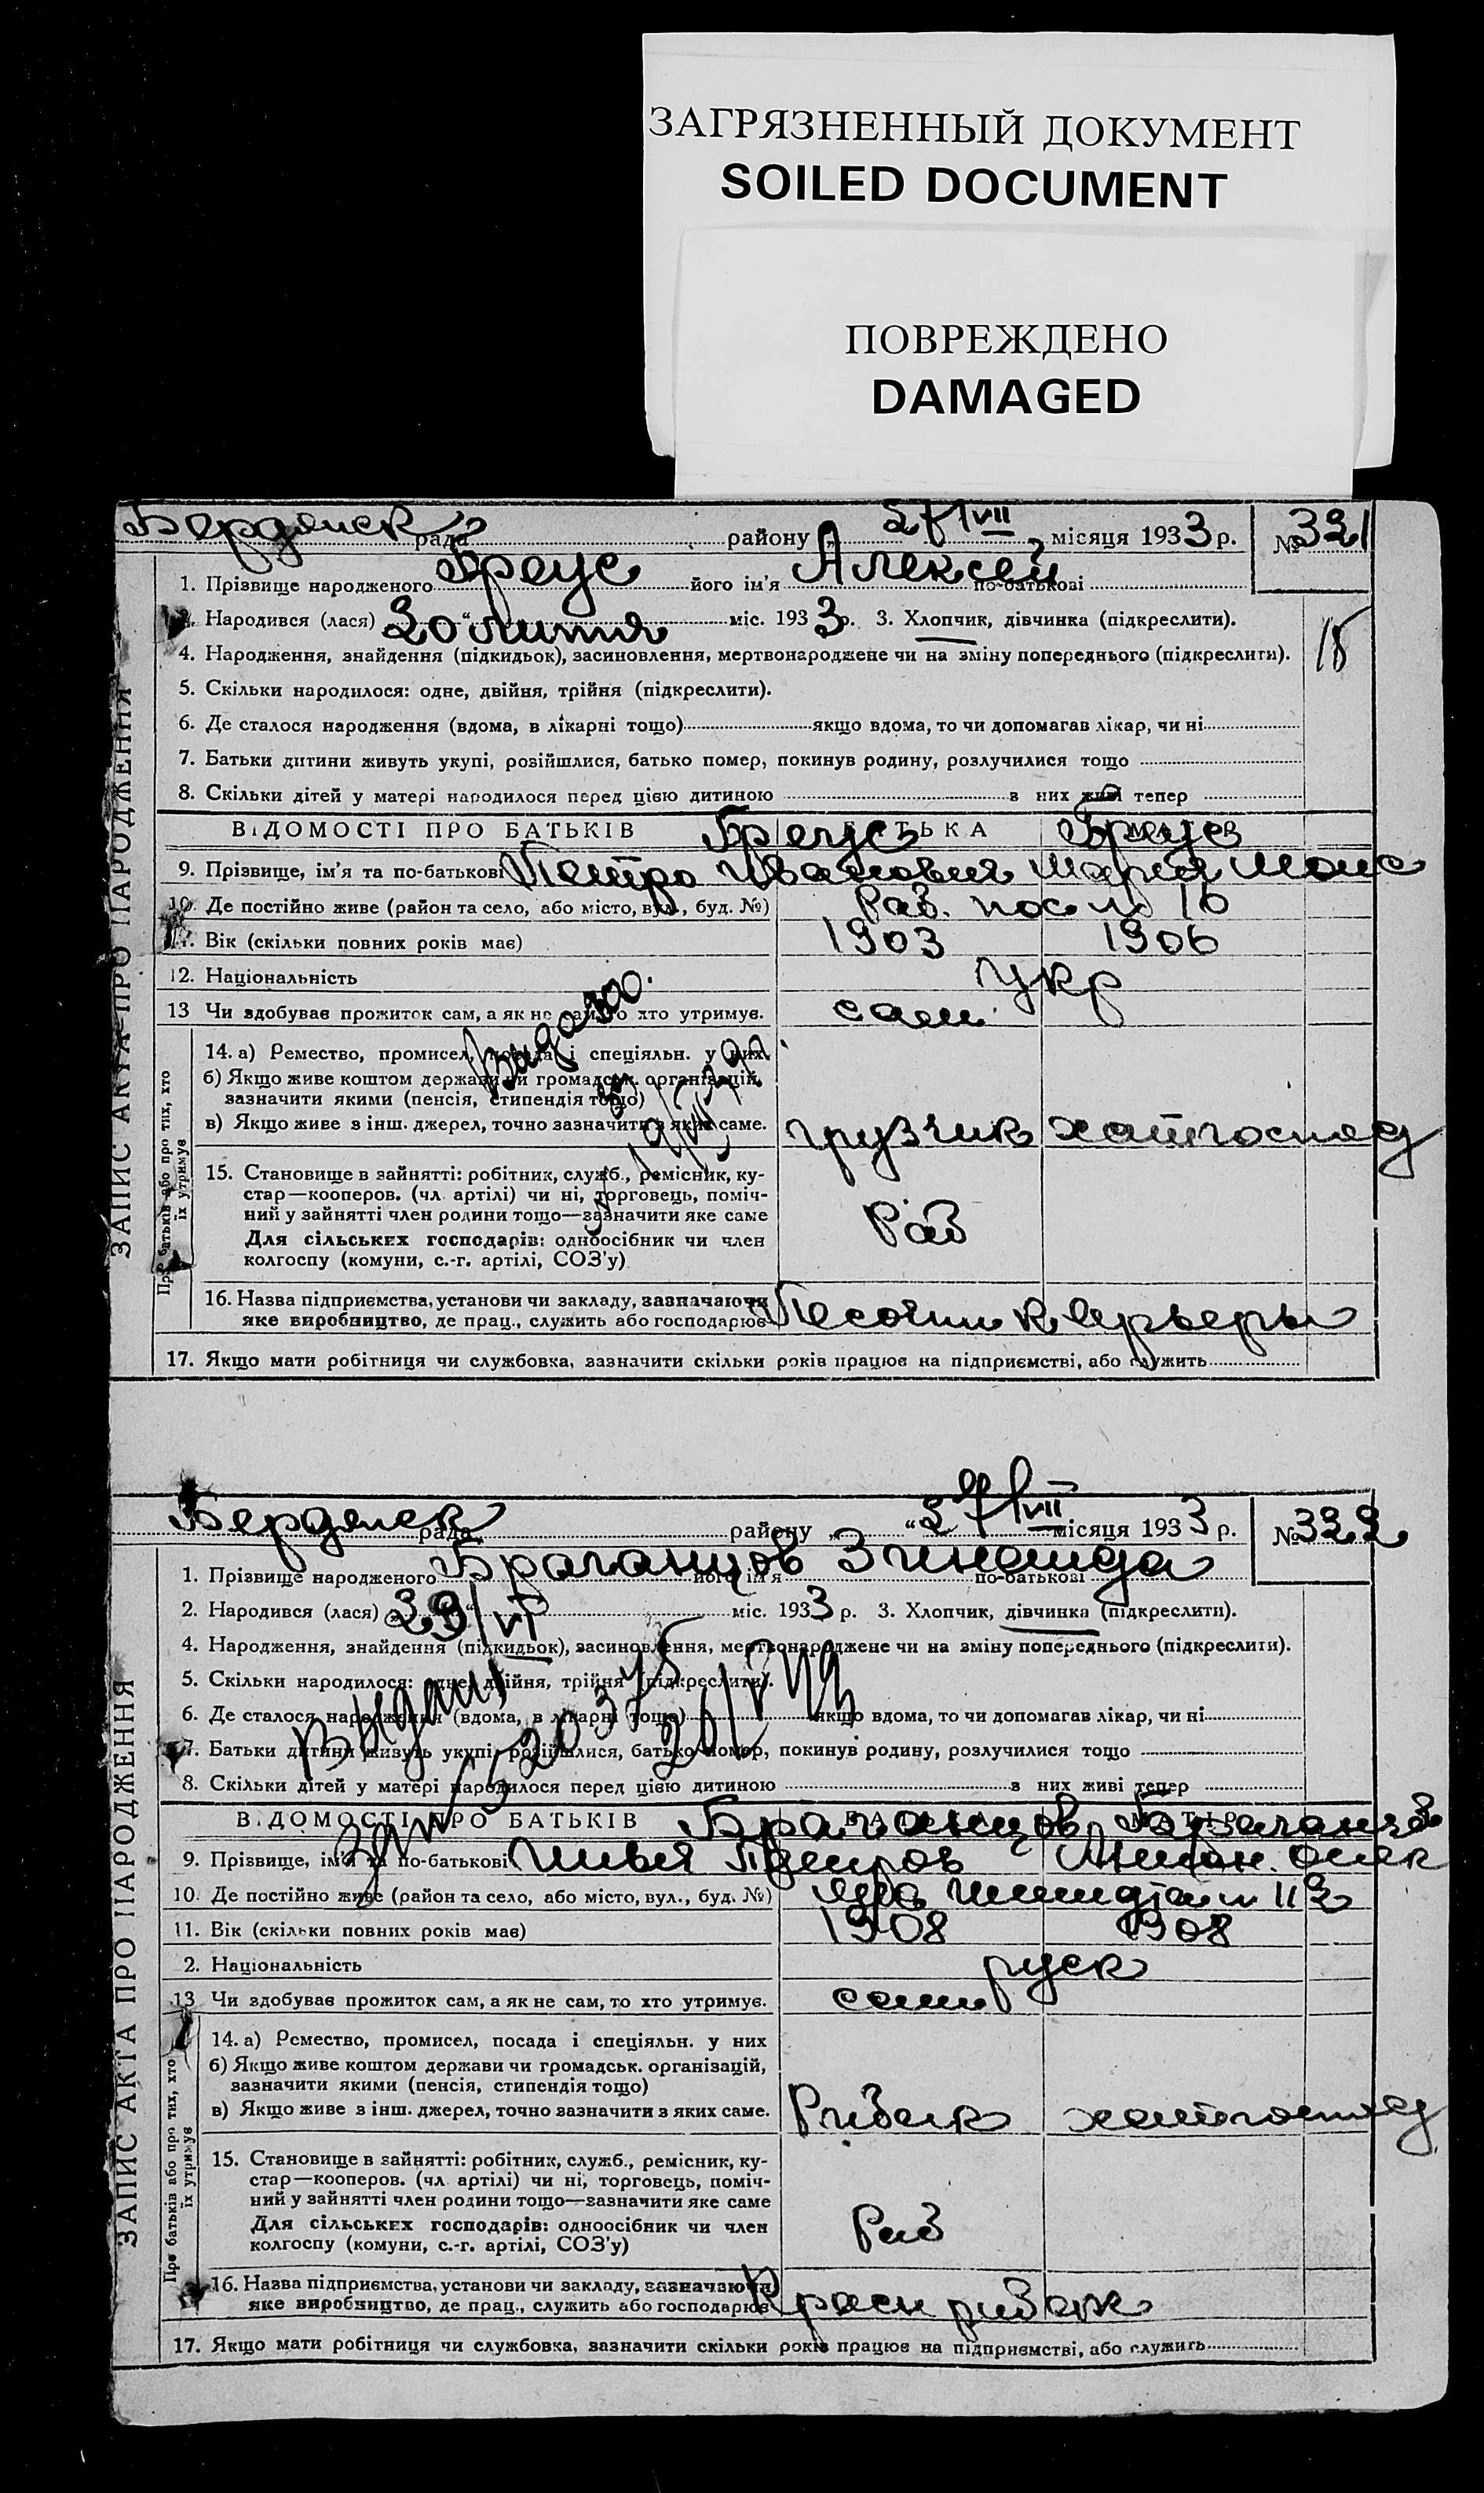 ЗАГРЯЗНЕННЫЙ ДОКУМЕНТ
SOILED DOCUMENT
ПОВРЕЖДЕНО
DAMAGED
ЗАПИС АКТА ПРО НАРОДЖЕННЯ
Бердянск рада району „ 27/VII місяця 1933 р. № 321
1. Прізвище народженого Греус його ім'я Алексей по-батькові
2. Народився (лася) „20“ липня міс. 1933 р. 3. Хлопчик, дівчинка (підкреслити).
18
4. Народження, знайдення (підкидьок), засиновлення, мертвонароджене чи на зміну попереднього (підкреслити).
5. Скільки народилося: одне, двійня, трійня (підкреслити).
6. Де сталося народження (вдома, в лікарні тощо) якщо вдома, то чи допомагав лікар, чи ні
7. Батьки дитини живуть укупі, розійшлися, батько помер, покинув родину, розлучилися тощо
8. Скільки дітей у матері народилося перед цією дитиною з них живі тепер
ВІДОМОСТІ ПРО БАТЬКІВ БАТЬКА МАТІР
Греус Греус
9. Прізвище, ім'я та по-батькові Петро Иванович Мария
10. Де постійно живе (район та село, або місто, вул., буд. №) Раб. пос 16
11. Вік (скільки повних років має) 1903 1906
12. Національність укр
13 Чи здобуває прожиток сам, а як не сам, то хто утримує. сам
Про батьків або про тих, хто їх утримує
14. а) Ремество, промисел, посада і спеціяльн. у них
б) Якщо живе коштом держави чи громадськ. організацій, зазначити якими (пенсія, стипендія тощо)
в) Якщо живе з інш. джерел, точно зазначити з яких саме. грузчик хатгоспод
15. Становище в зайнятті: робітник, служб., ремісник, ку-
стар—кооперов. (чл. артілі) чи ні, торговець, поміч-
ний у зайнятті член родини тощо—зазначити яке саме
Раб
Для сільських господарів: одноосібник чи член
колгоспу (комуни, с.-г. артілі, СОЗ'у)
16. Назва підприємства, установи чи закладу, зазначаючи
яке виробництво, де прац., служить або господарює
17. Якщо мати робітниця чи службовка, зазначити скільки років працює на підприємстві, або служить
ЗАПИС АКТА ПРО НАРОДЖЕННЯ
Бердянск рада району „ “ 27/VII місяця 1933 р. № 322
1. Прізвище народженого Браганцов його ім'я Зинаида по-батькові
2. Народився (лася) „ “ міс. 1933 р. 3. Хлопчик, дівчинка (підкреслити).
4. Народження, знайдення (підкидьок), засиновлення, мертвонароджене чи на зміну попереднього (підкреслити).
5. Скільки народилося: одне, двійня, трійня (підкреслити).
6. Де сталося народження (вдома, в лікарні тощо) якщо вдома, то чи допомагав лікар, чи ні
7. Батьки дитини живуть укупі, розійшлися, батько помер, покинув родину, розлучилися тощо
8. Скільки дітей у матері народилося перед цією дитиною з них живі тепер
ВІДОМОСТІ ПРО БАТЬКІВ БАТЬКА МАТІР
Браганцов
9. Прізвище, ім'я та по-батькові Илья Петров
10. Де постійно живе (район та село, або місто, вул., буд. №)
11. Вік (скільки повних років має) 1908 1908
2. Національність руск
13 Чи здобуває прожиток сам, а як не сам, то хто утримує. сам
Про батьків або про тих, хто їх утримує
14. а) Ремество, промисел, посада і спеціяльн. у них
б) Якщо живе коштом держави чи громадськ. організацій,
зазначити якими (пенсія, стипендія тощо)
в) Якщо живе з інш. джерел, точно зазначити з яких саме. Рибак хатгоспод
15. Становище в зайнятті: робітник, служб., ремісник, ку-
стар—кооперов. (чл. артілі) чи ні, торговець, поміч-
ний у зайнятті член родини тощо—зазначити яке саме
Раб
Для сільських господарів: одноосібник чи член
колгоспу (комуни, с.-г. артілі, СОЗ'у)
16. Назва підприємства, установи чи закладу, зазначаючи
яке виробництво, де прац., служить або господарює Красн рибак
17. Якщо мати робітниця чи службовка, зазначити скільки років працює на підприємстві, або служить